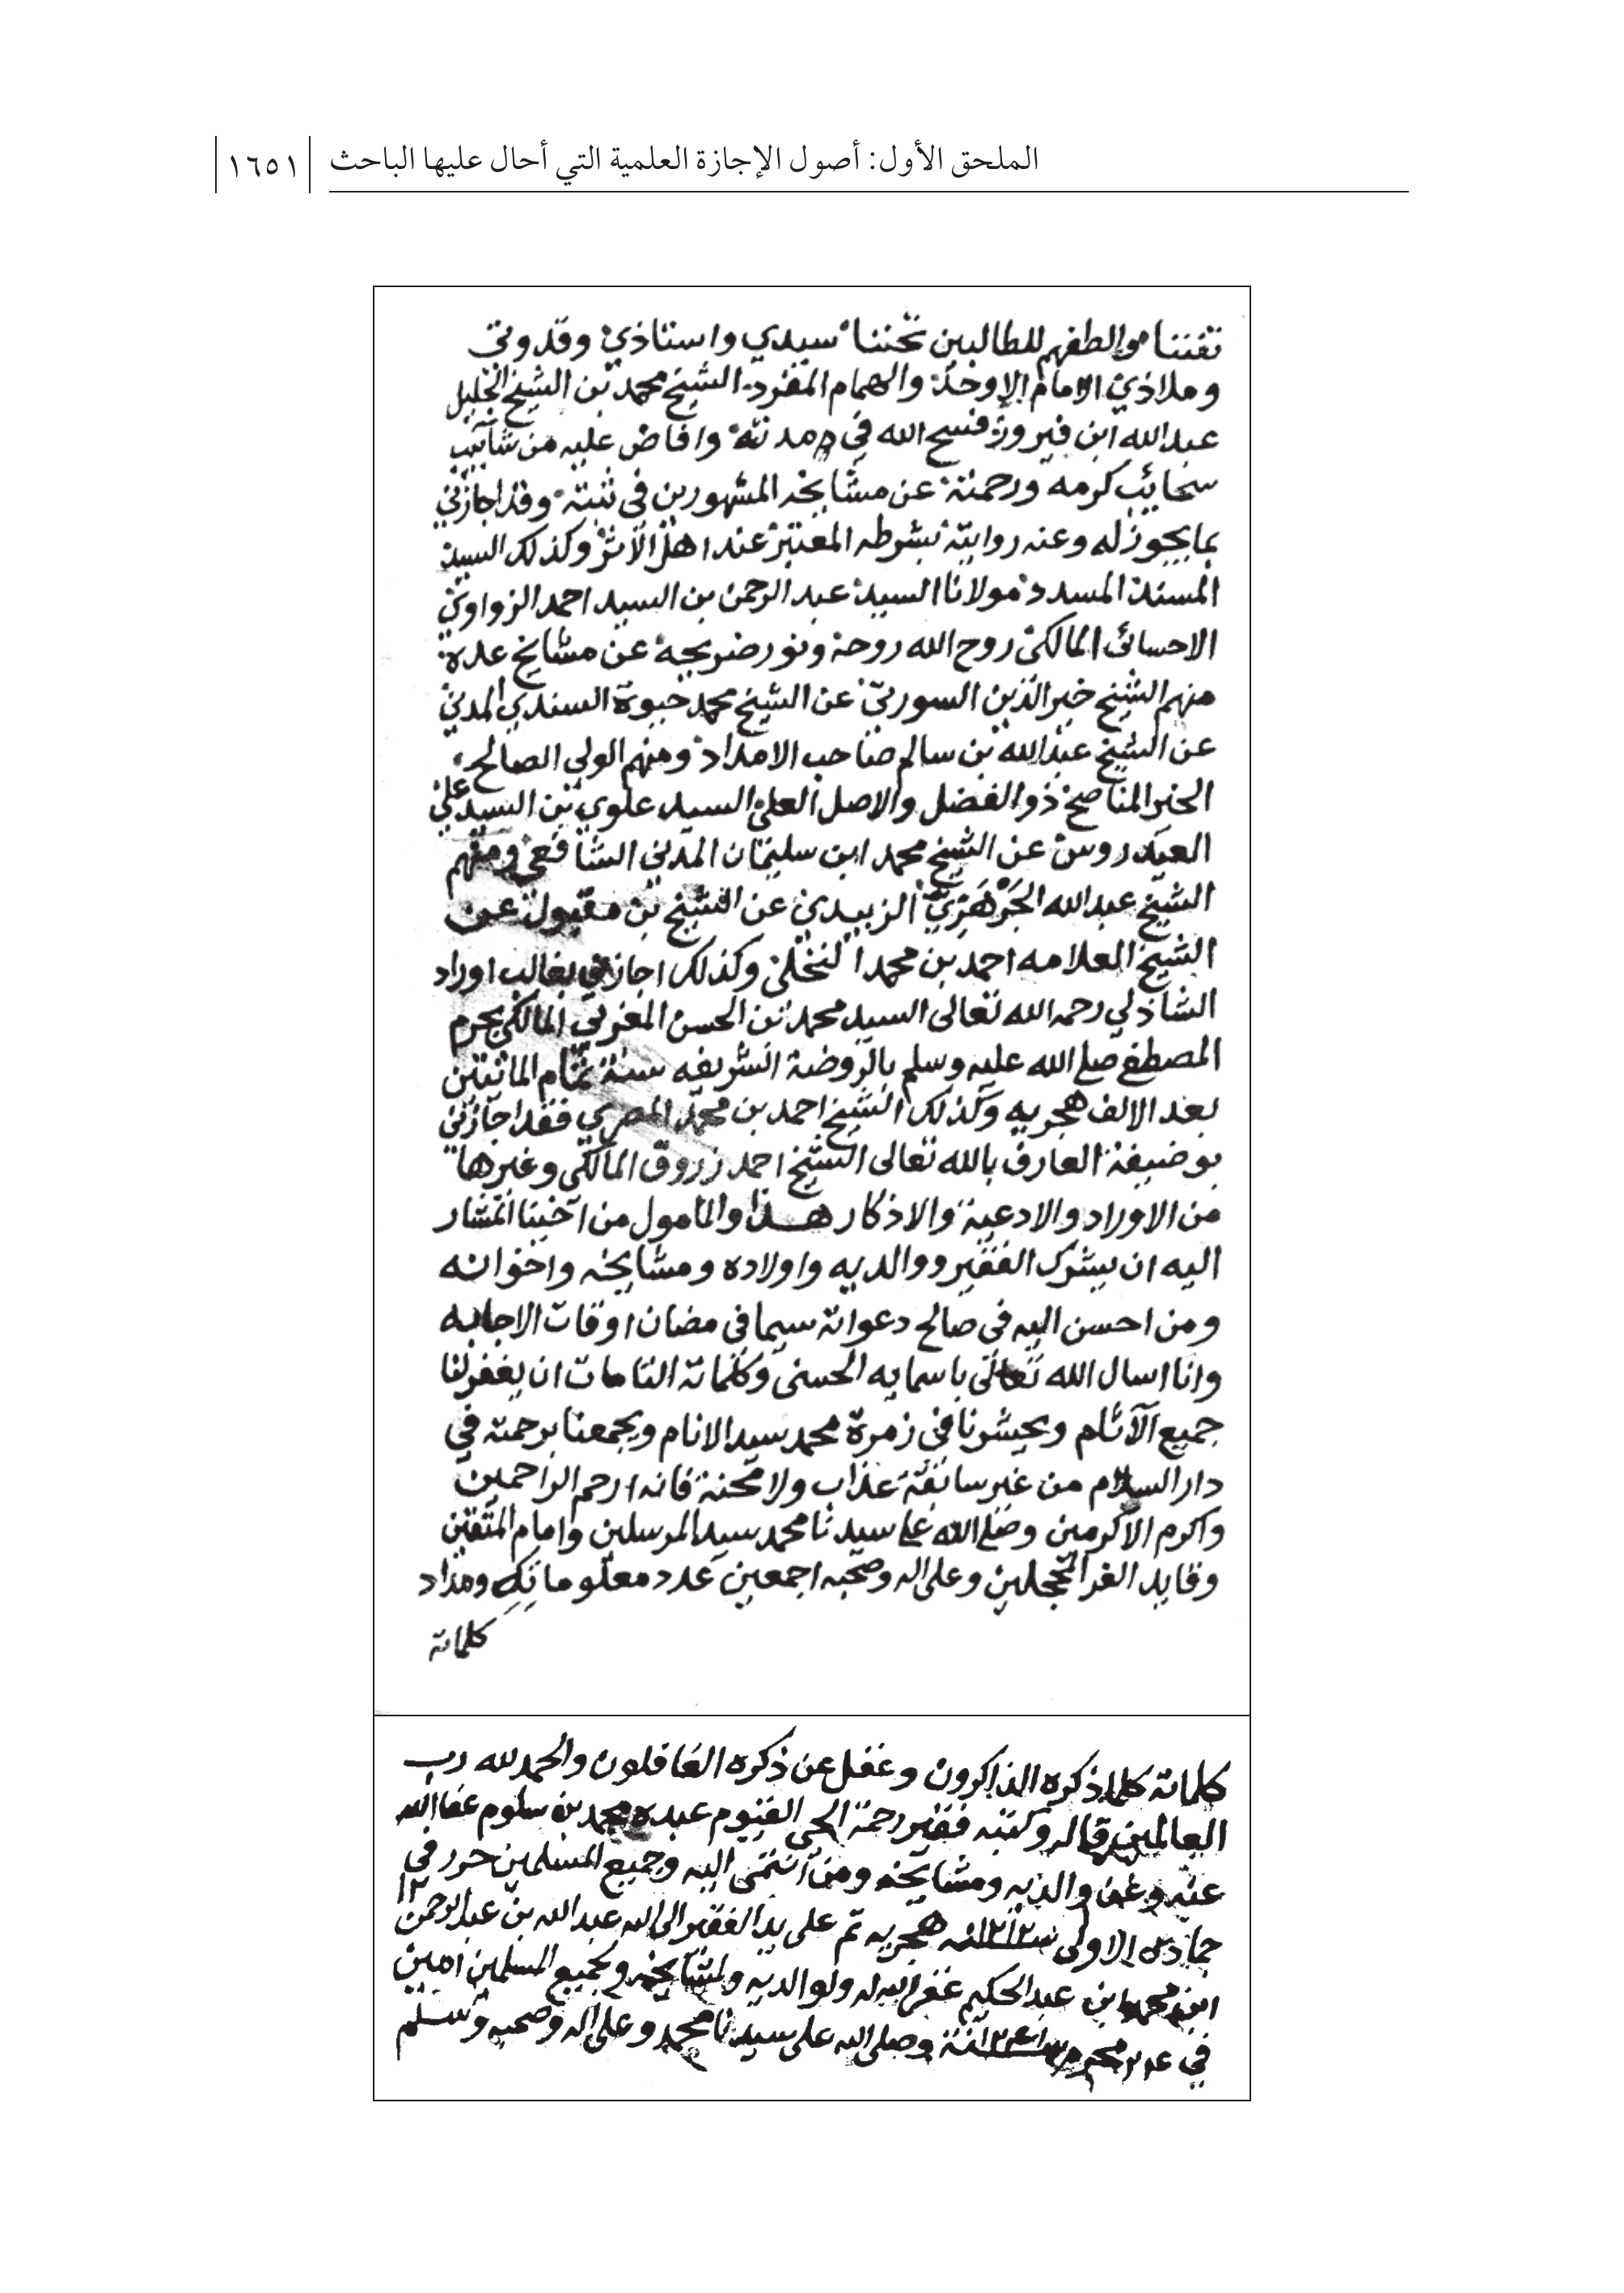 الملحق الأول: أصول الإجازة العلمية التي أحال عليها الباحث
١٦٥١
والطفهم للطالبين تحننا سيدي واستاذي وقدوتي
وملاذي الامام الاوحد والهمام المفرد الشيخ محمد بن الشيخ الجليل
عبدالله ابن فيروز فسح الله في مدته وافاض عليه من شآبيب
سحائب كرمه ورحمته عن مشايخه المشهورين في ثبته وقد اجازني
بما يجوز له وعنه روايته بشرطه المعتبر عند اهل الاثر وكذلك السيد
المسند المسدد مولانا السيد عبد الرحمن بن السيد احمد الزواوي
الاحسائي المالكي روح الله روحه ونور ضريحه عن مشايخ عده
منهم الشيخ خير الدين السورتي عن الشيخ محمد حيوة السندي المدني
عن الشيخ عبدالله بن سالم صاحب الامداد ومنهم الولي الصالح
الحبر الناصح ذو الفضل والاصل العلي السيد علوي بن السيد علي
العيدروس عن الشيخ محمد ابن سليمان المدني الشافعي ومنهم
الشيخ عبدالله الجَرْهَزِيّ الزبيدي عن الشيخ بن مقبول عن
الشيخ العلامه احمد بن محمد النخلي وكذلك اجازني بغالب اوراد
الشاذلي رحمه الله تعالى السيد محمد بن الحسن المغربي المالكي بحرم
المصطفى صلى الله عليه وسلم بالروضة الشريفه سنة تمام الماتين
بعد الالف هجريه وكذلك الشيخ احمد بن محمد المصري فقد اجازني
بوضيفة العارف بالله تعالى الشيخ احمد زروق المالكي وغيرها
من الاوراد والادعية والاذكار هذا والمامول من آخينا المشار
اليه ان يشرك الفقير ووالديه واولاده ومشايخه واخوانه
ومن احسن اليه في صالح دعواته سيما في مضان اوقات الاجابه
وانا اسال الله تعالى باسمايه الحسنى وكلماته التامات ان يغفر لنا
جميع الآثام ويحشرنا في زمرة محمد سيد الانام ويجمعنا برحمته في
دار السلام من غير سابقة عذاب ولا محنة فانه ارحم الراحمين
واكرم الاكرمين وصلى الله على سيدنا محمد سيد المرسلين وامام المتقين
وقايد الغر المحجلين وعلى اله وصحبه اجمعين عدد معلوماتك ومداد
كلماته
كلماته كلما ذكره الذاكرون وغفل عن ذكره الغافلون والحمد لله رب
العالمين قاله وكتبه فقير رحمة الحي القيوم عبده محمد بن سلوم عفا الله
عنه وعن والديه ومشايخه ومن انتمى اليه وجميع المسلمين حرر في ١٢
جمادى الاولى هجريه تم على يد الفقير الى الله عبد الله بن عبد الرحمن
ابن محمد ابن عبد الحكيم غفر الله له ولوالديه ولمشايخه ولجميع المسلمين امين
في محرم وصلى الله على سيدنا محمد وعلى اله وصحبه وسلم